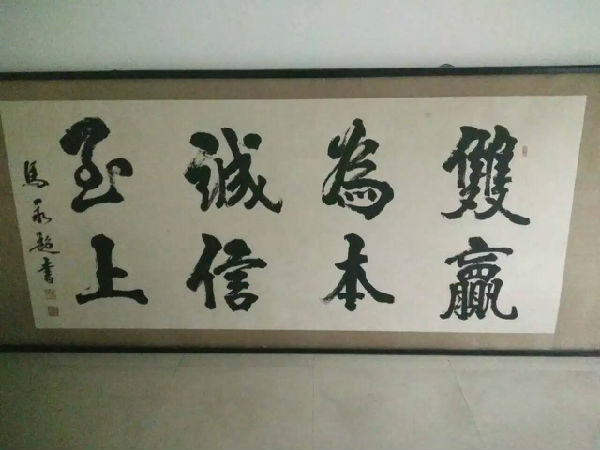 雙贏
為本
誠信
至上
馬永超書